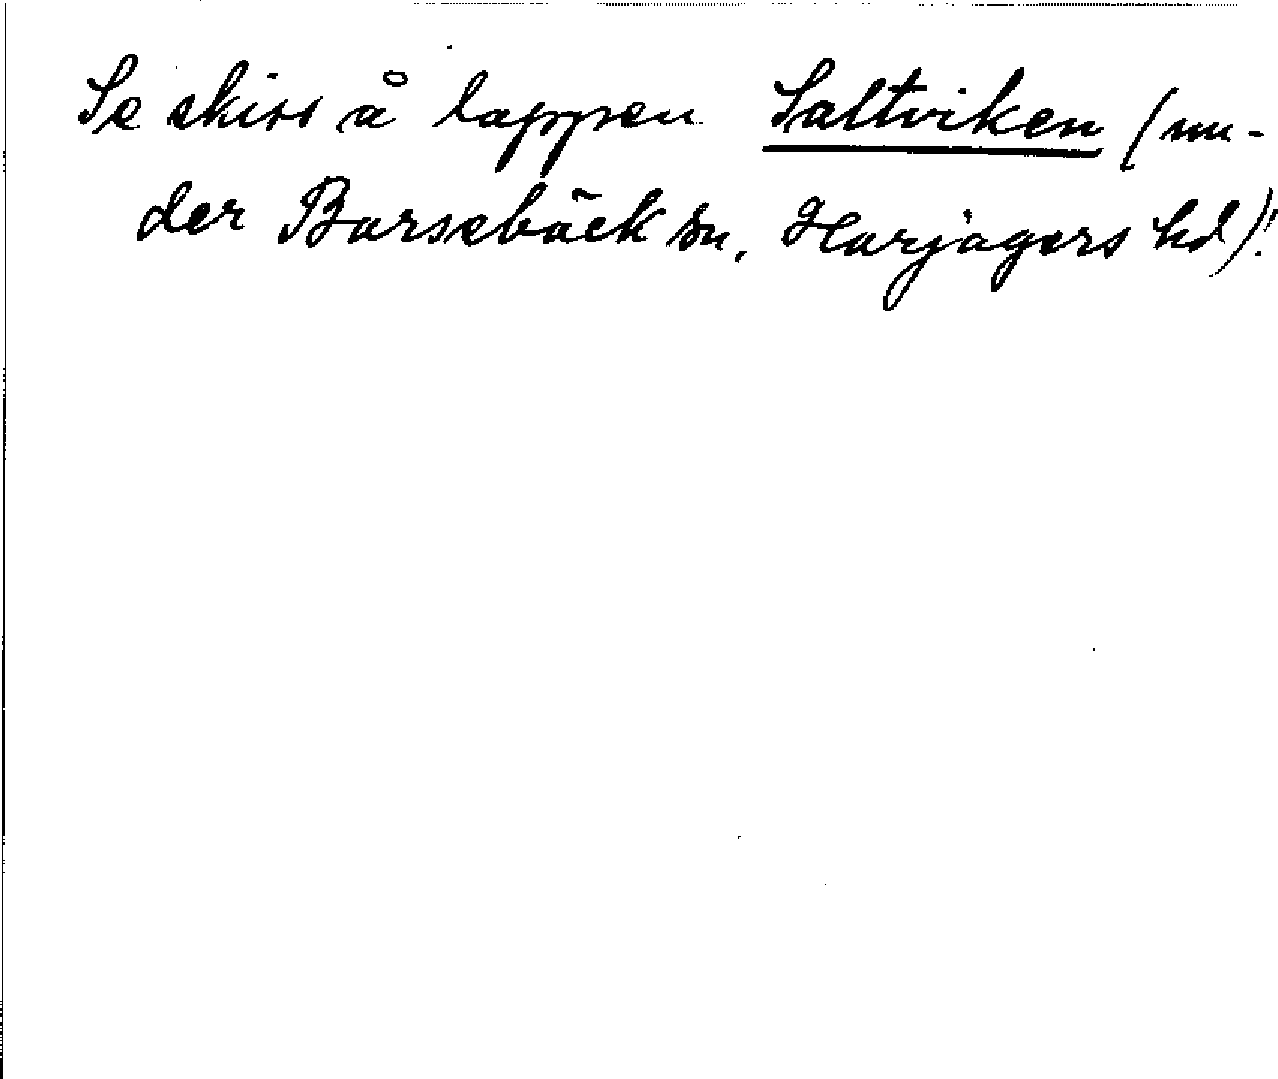 Se skiss å lappen Saltviken (un-
der Barsebäck sn, Harjagers hd)!